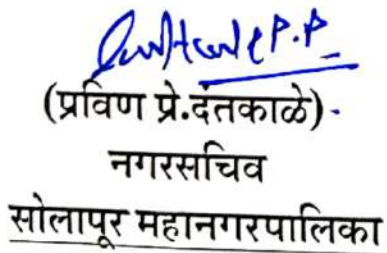 P.P
(प्रविण प्रे.दंतकाळे)
नगरसचिव
सोलापूर महानगरपालिका